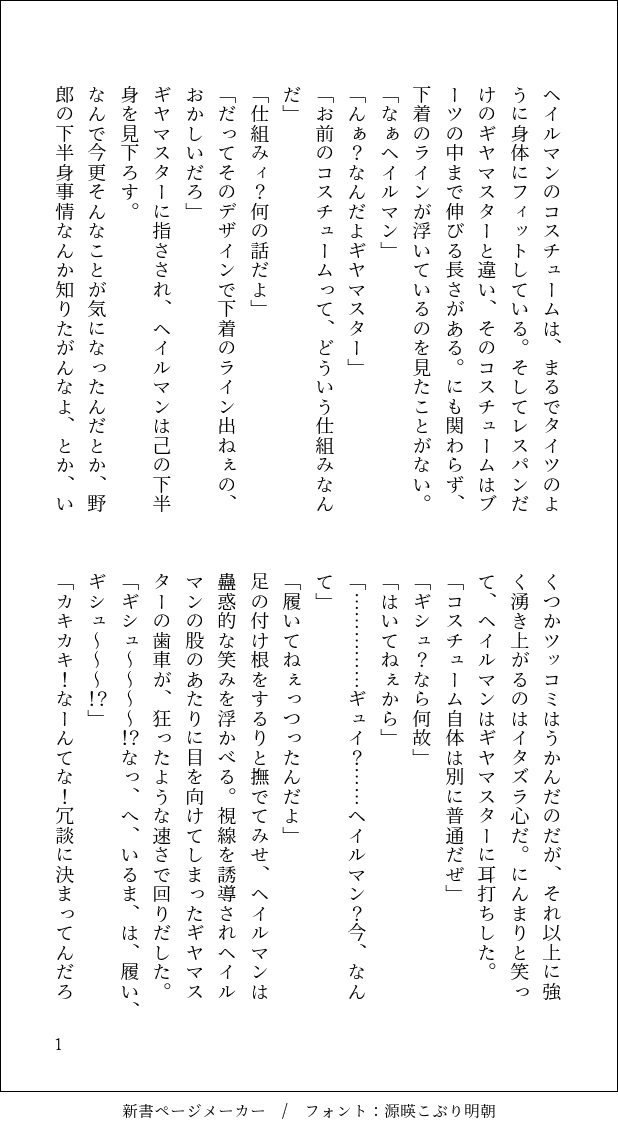 ヘイルマンのコスチュームは、まるでタイツのよ
うに身体にフィットしている。そしてレスパンだ
けのギヤマスターと違い、そのコスチュームはブ
ーツの中まで伸びる長さがある。にも関わらず、
下着のラインが浮いているのを見たことがない。
「なぁヘイルマン」
「んぁ？なんだよギヤマスター」
「お前のコスチュームって、どういう仕組みなん
だ」
「仕組みィ？何の話だよ」
「だってそのデザインで下着のライン出ねぇの、
おかしいだろ」
ギヤマスターに指さされ、ヘイルマンは己の下半
身を見下ろす。
なんで今更そんなことが気になったんだとか、野
郎の下半身事情なんか知りたがんなよ、とか、い
くつかツッコミはうかんだのだが、それ以上に強
く湧き上がるのはイタズラ心だ。にんまりと笑っ
て、ヘイルマンはギヤマスターに耳打ちした。
「コスチューム自体は別に普通だぜ」
「ギシュ？なら何故」
「はいてねぇから」
「……………ギュイ？……ヘイルマン？今、なん
て」
「履いてねぇっつったんだよ」
足の付け根をするりと撫でてみせ、ヘイルマンは
蠱惑的な笑みを浮かべる。視線を誘導されヘイル
マンの股のあたりに目を向けてしまったギヤマス
ターの歯車が、狂ったような速さで回りだした。
「ギシュ〜〜〜〜!?なっ、へ、いるま、は、履い、
ギシュ〜〜〜!?」
「カキカキ！なーんてな！冗談に決まってんだろ
1
新書ページメーカー / フォント：源暎こぶり明朝